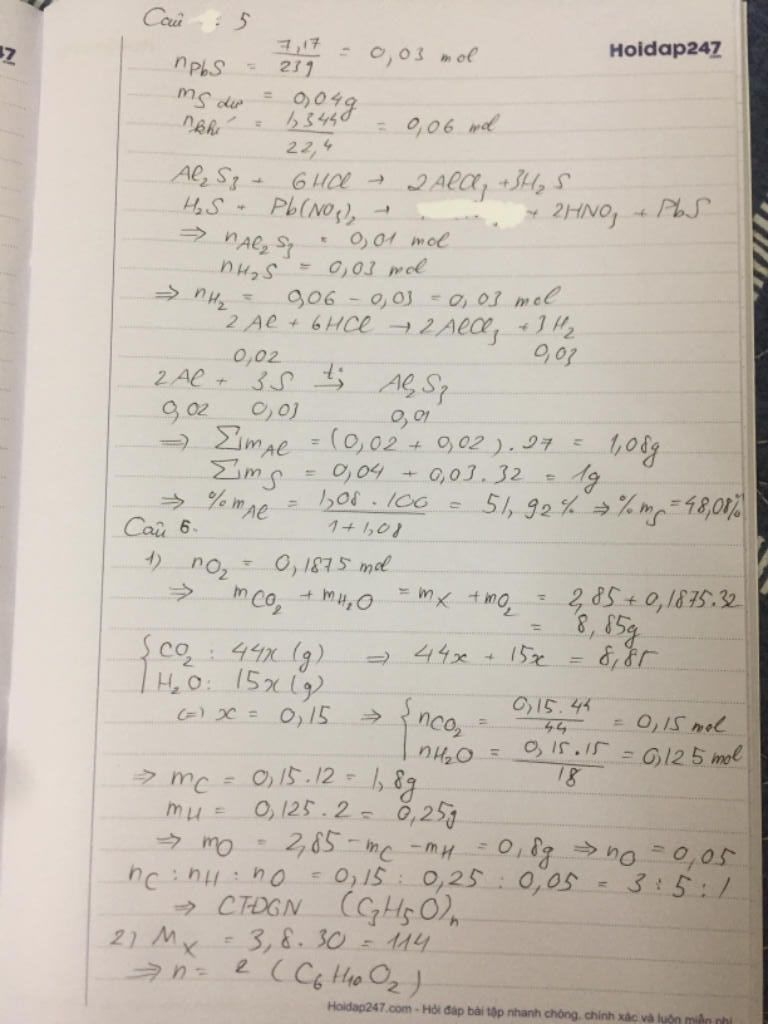 Câu : 5
Hoidap247
47
nPbS = 7,17/239 = 0,03 mol
mS dư = 0,04g
nkhí = 1,344/22,4 = 0,06 mol
Al2S3 + 6HCl → 2AlCl3 + 3H2S
H2S + Pb(NO3)2 → + 2HNO3 + PbS
⇒ nAl2S3 = 0,01 mol
nH2S = 0,03 mol
⇒ nH2 = 0,06 - 0,03 = 0,03 mol
2Al + 6HCl → 2AlCl3 + 3H2
0,02 0,03
2Al + 3S t° → Al2S3
0,02 0,03 0,01
⇒ ΣmAl = (0,02 + 0,02).27 = 1,08g
ΣmS = 0,04 + 0,03.32 = 1g
⇒ %mAl = 1,08.100/1+1,08 = 51,92% ⇒ %mS = 48,08%
Câu 6.
1) nO2 = 0,1875 mol
⇒ mCO2 + mH2O = mX + mO2 = 2,85 + 0,1875.32
= 8,85g
{ CO2 : 44x (g) ⇒ 44x + 15x = 8,85
H2O: 15x (g)
(=) x = 0,15 ⇒ { nCO2 = 0,15.44/44 = 0,15 mol
nH2O = 0,15.15/18 = 0,125 mol
⇒ mC = 0,15.12 = 1,8g
mH = 0,125.2 = 0,25g
⇒ mO = 2,85 - mC - mH = 0,8g ⇒ nO = 0,05
nC : nH : nO = 0,15 : 0,25 : 0,05 = 3 : 5 : 1
⇒ CTĐGN (C3H5O)n
2) MX = 3,8.30 = 114
⇒ n = 2 (C6H10O2)
Hoidap247.com - Hỏi đáp bài tập nhanh chóng, chính xác và luôn miễn phí